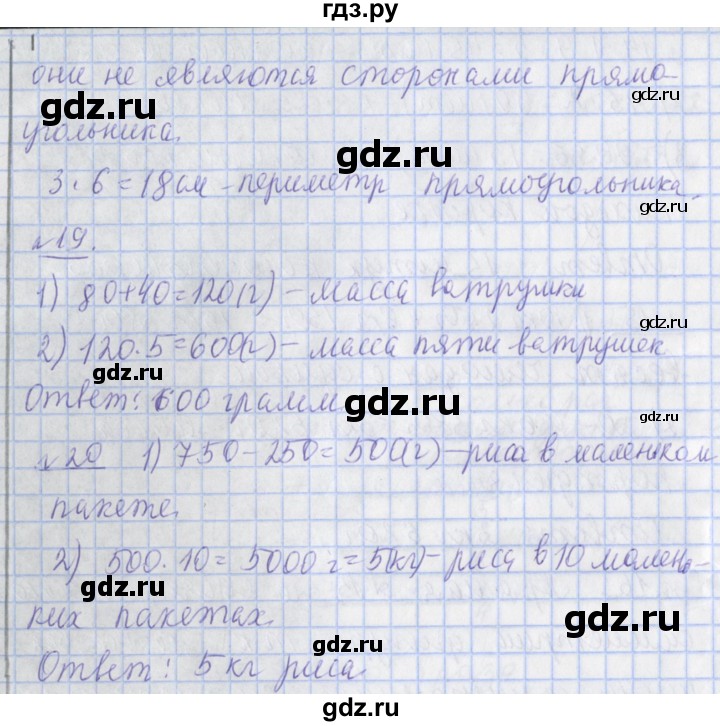 гдз.ру
они не являются сторонами прямо-
gdz.ru
gdz.ru
угольника.
gdz.ru
3 · 6 = 18 см – периметр прямоугольника.
gdz.ru
№19.
gdz.ru
1) 80+40=120(г) – масса ватрушки
2) 120·5=600(г) – масса пяти ватрушек
gdz.ru
Ответ: 600 грамм
gdz.ru
gdz.ru
№20 1) 750-250=500(г) – риса в маленьком
пакете.
gdz.ru
2) 500·10=5000 г=5(кг) – риса в 10 малень-
gdz.ru
ких пакетах.
gdz.ru
gdz.ru
Ответ: 5 кг риса.
gdz.ru